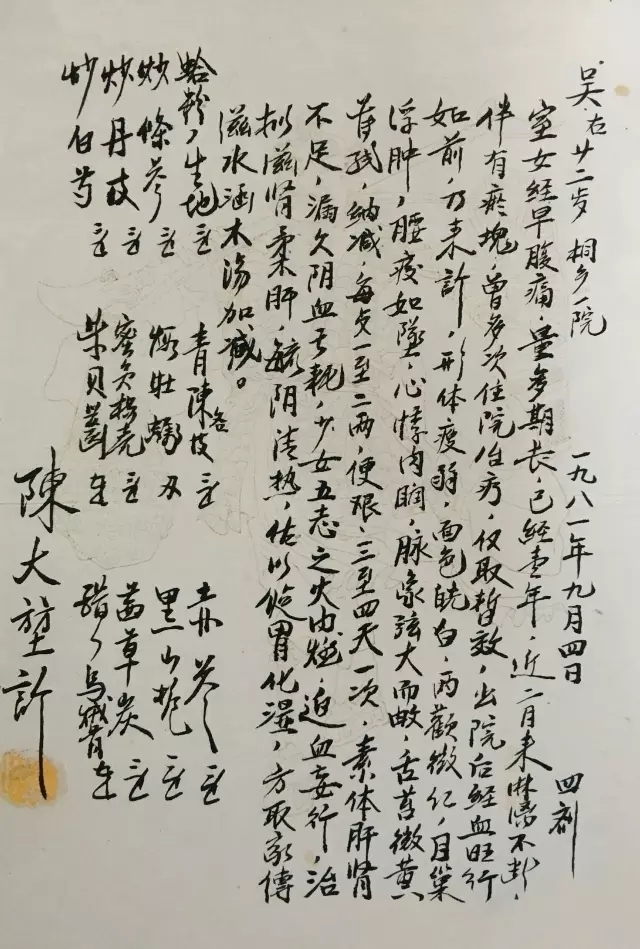 吴右 廿二岁 桐乡一院 一九八一年九月四日 四剂
室女经早腹痛，量多期长，已经壹年，近二月来淋漓不断，
伴有瘀块，曾多次住院治疗，仅取暂效，出院后经血旺行
如前，乃来诊，形体疲弱，面色㿠白，两颧微红，目窠
浮肿，腰痠如墜，心悸肉瞤，脉象弦大而，舌苔微黄
苔，纳减，每一至二两，便艰，三至四天一次，素体肝肾
不足，漏久阴血亏耗，少女五志之火内燃，迫血妄行，治
拟滋肾柔肝，毓阴清热，佐以，胃化湿，方取家傳
滋水涵木汤加减。
蛤粉，生地 青陳各 赤芍
炒條芩 煅牡蠣 黑山栀
炒丹皮 蜜炙椿壳 茜草炭
炒白芍 紫贝齒 醋，烏贼骨
陳大堃診